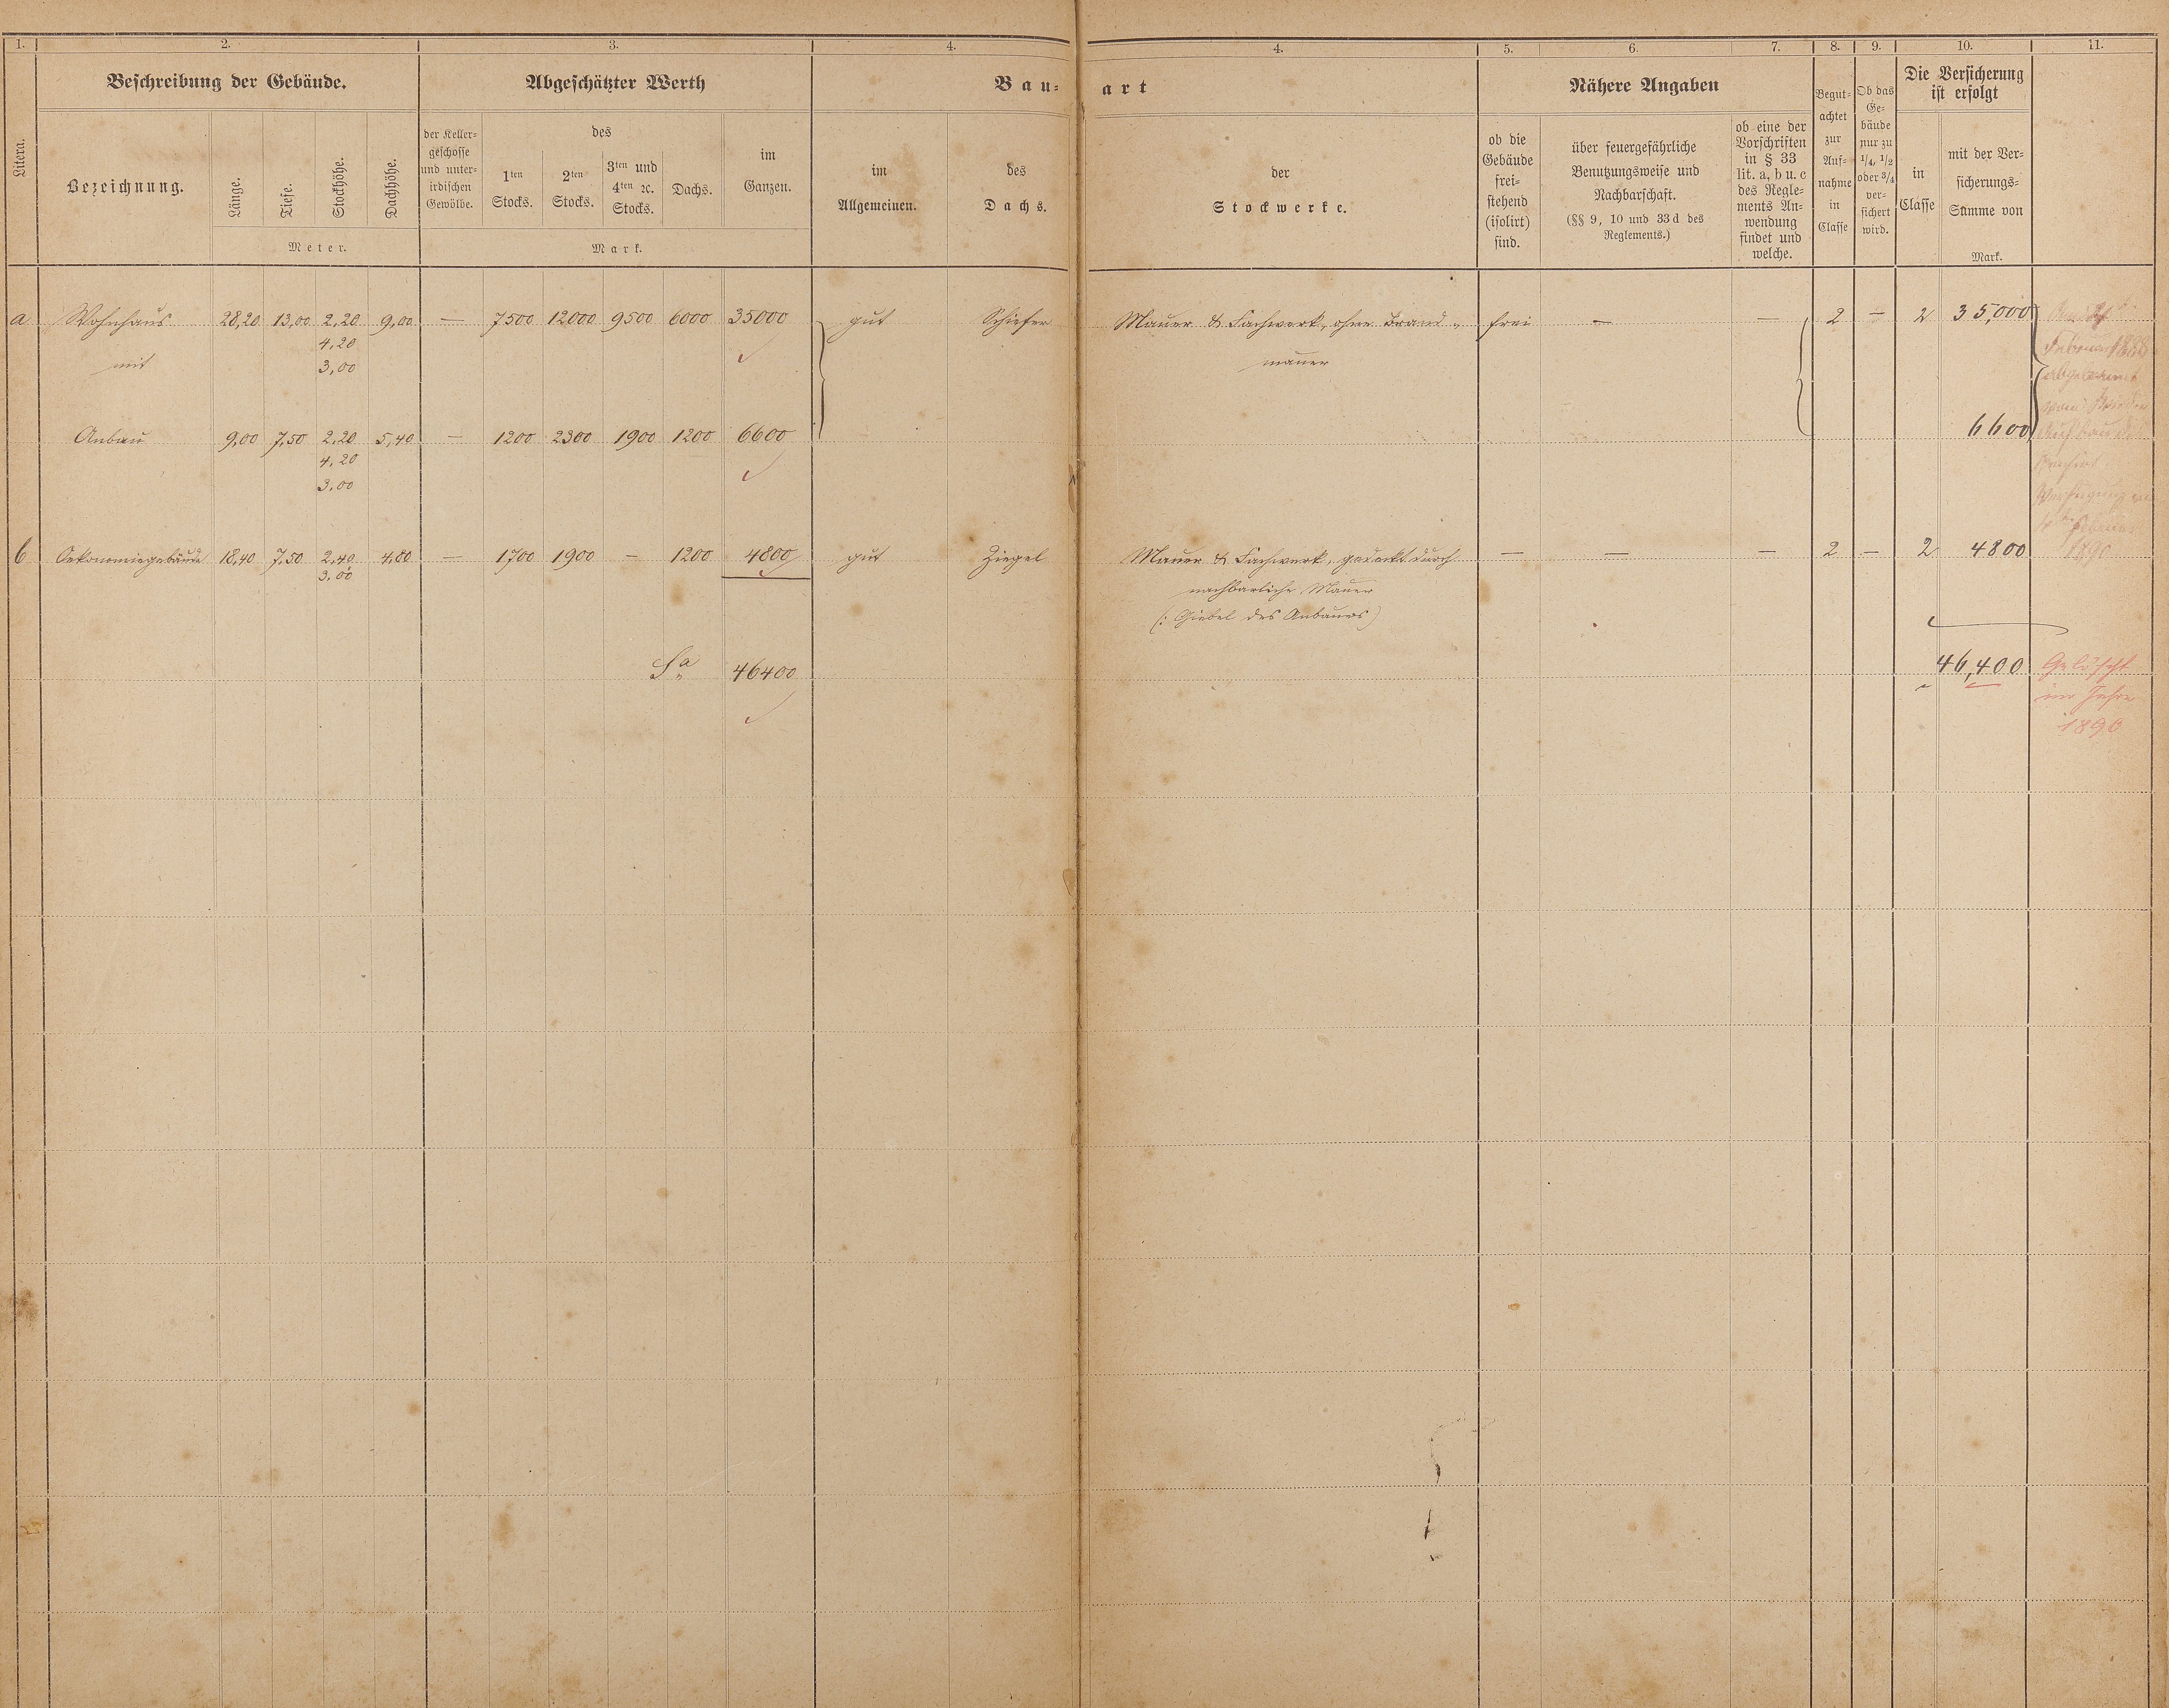 1. 2. 3. 4. 4. 5. 6. 7. 8. 9. 10. 11.
Litera.
Beschreibung der Gebäude.
Bezeichnung.
Länge.
Tiefe.
Stockhöhe.
Dachhöhe.
Meter.
Abgeschätzter Werth
der Keller-
geschosse
und unter-
irdischen
Gewölbe.
des
1ten
Stocks.
2ten
Stocks.
3ten und
4ten ꝛc.
Stocks.
Dachs.
im
Ganzen.
Mark.
Bau-
art
im
Allgemeinen.
des
Dachs.
der
Stockwerke.
Nähere Angaben
ob die
Gebäude
frei-
stehend
(isolirt)
sind.
über feuergefährliche
Benutzungsweise und
Nachbarschaft.
(§§ 9, 10 und 33 d des
Reglements.)
ob eine der
Vorschriften
in § 33
lit. a, b u. c
des Regle-
ments An-
wendung
findet und
welche.
Begut-
achtet
zur
Auf-
nahme
in
Classe
Ob das
Ge-
bäude
nur zu
1/4, 1/2
oder 3/4
ver-
sichert
wird.
Die Versicherung
ist erfolgt
in
Classe
mit der Ver-
sicherungs-
Summe von
Mark.
a Wohnhaus 28,20 13,00 2,20 9,00 — 7500 12000 9500 6000 35000 gut Schiefer Mauer & Fachwerk, ohne Brand- frei — — 2 — 2 35,000
4,20
mit 3,00 mauer
Februar 1888
Anbau 9,00 7,50 2,20 5,40 — 1200 2300 1900 1200 6600 6600
4,20
3,00
b Oekonomiegebäude 18,40 7,50 2,40 4,80 — 1700 1900 — 1200 4800 gut Ziegel Mauer & Fachwerk, gedeckt durch — — — 2 — 2 4800 1890
3,00 nachbarliche Mauer
(: Giebel des Anbaues)
Sa 46400 46,400 Gelöscht
im Jahre
1890